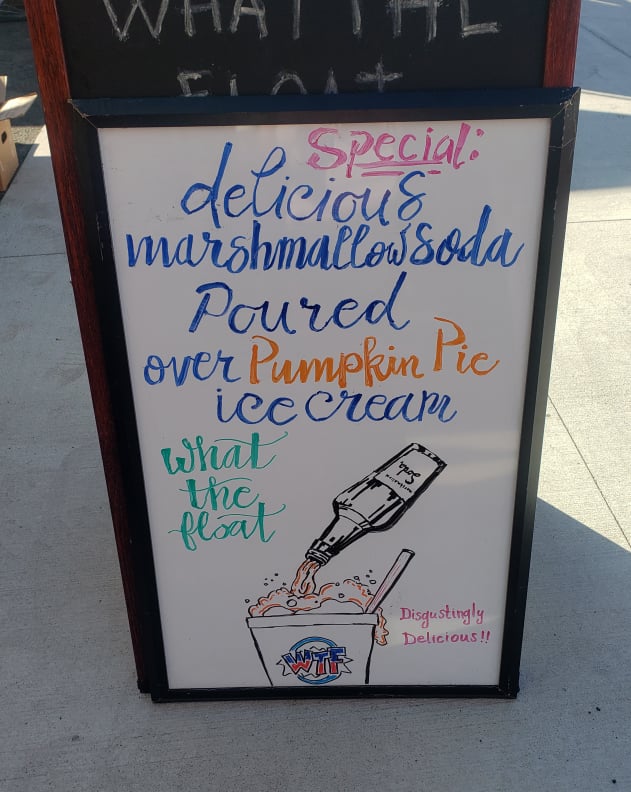 WHAT THE
FLOAT
Special:
delicious
marshmallow soda
Poured
over Pumpkin Pie
ice cream
what
the
float
Soda
Disgustingly
Delicious!!
WTF